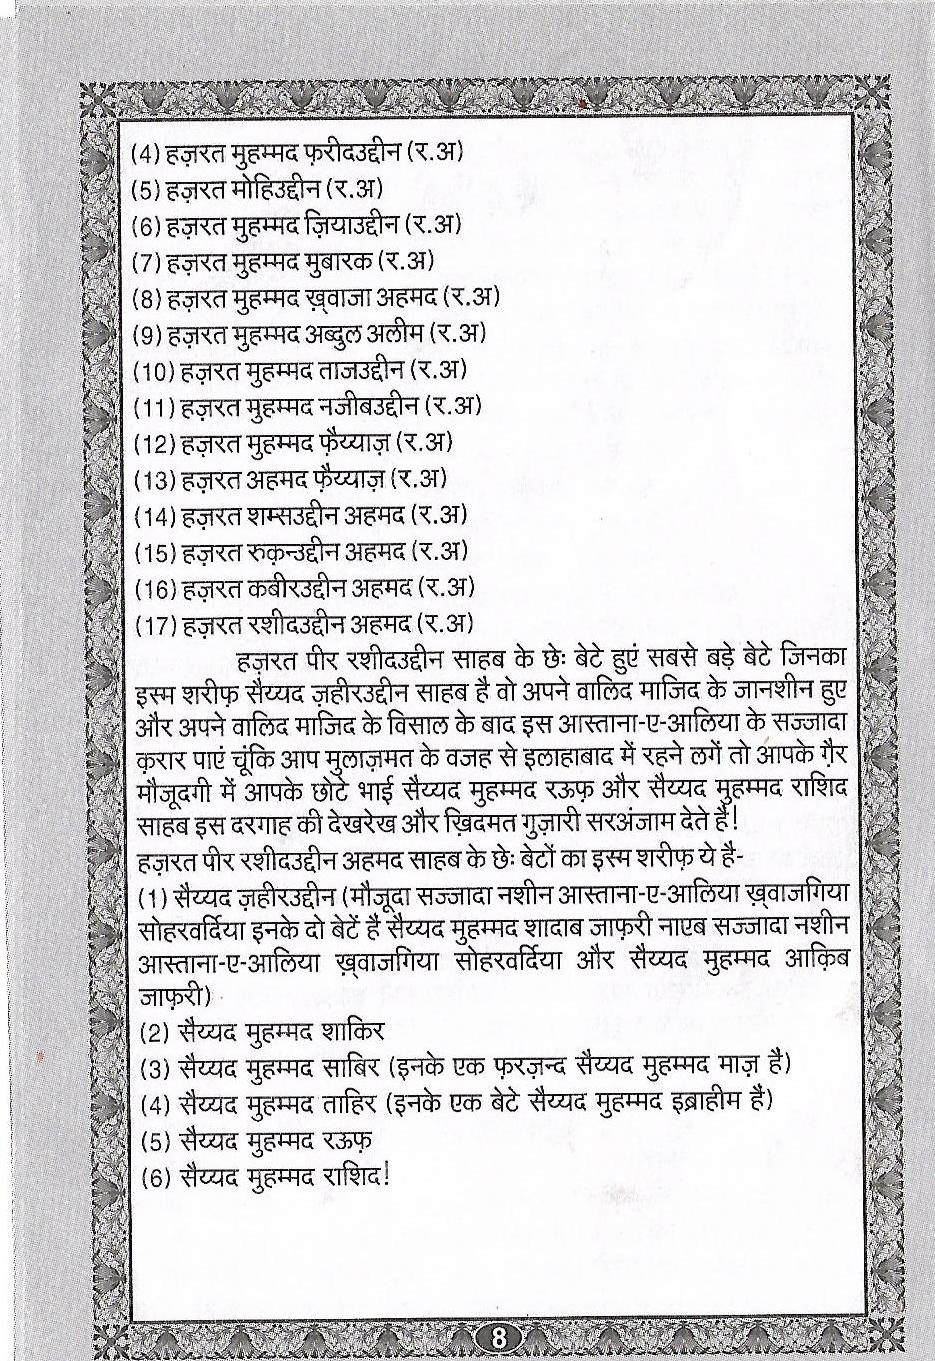 (4) हज़रत मुहम्मद फ़रीदउद्दीन (र.अ)
(5) हज़रत मोहिउद्दीन (र.अ)
(6) हज़रत मुहम्मद ज़ियाउद्दीन (र.अ)
(7) हज़रत मुहम्मद मुबारक (र.अ)
(8) हज़रत मुहम्मद ख़्वाजा अहमद (र.अ)
(9) हज़रत मुहम्मद अब्दुल अलीम (र.अ)
(10) हज़रत मुहम्मद ताजउद्दीन (र.अ)
(11) हज़रत मुहम्मद नजीबउद्दीन (र.अ)
(12) हज़रत मुहम्मद फ़ैय्याज़ (र.अ)
(13) हज़रत अहमद फ़ैय्याज़ (र.अ)
(14) हज़रत शम्सउद्दीन अहमद (र.अ)
(15) हज़रत रुक़न्उद्दीन अहमद (र.अ)
(16) हज़रत कबीरउद्दीन अहमद (र.अ)
(17) हज़रत रशीदउद्दीन अहमद (र.अ)
हज़रत पीर रशीदउद्दीन साहब के छेः बेटे हुएं सबसे बड़े बेटे जिनका
इस्म शरीफ़ सैय्यद ज़हीरउद्दीन साहब है वो अपने वालिद माजिद के जानशीन हुए
और अपने वालिद माजिद के विसाल के बाद इस आस्ताना-ए-आलिया के सज्जादा
क़रार पाएं चूंकि आप मुलाज़मत के वजह से इलाहाबाद में रहने लगें तो आपके ग़ैर
मौजूदगी में आपके छोटे भाई सैय्यद मुहम्मद रऊफ़ और सैय्यद मुहम्मद राशिद
साहब इस दरगाह की देखरेख और ख़िदमत गुज़ारी सरअंजाम देते हैं!
हज़रत पीर रशीदउद्दीन अहमद साहब के छेः बेटों का इस्म शरीफ़ ये है-
(1) सैय्यद ज़हीरउद्दीन (मौजूदा सज्जादा नशीन आस्ताना-ए-आलिया ख़्वाजगिया
सोहरवर्दिया इनके दो बेटें हैं सैय्यद मुहम्मद शादाब जाफ़री नाएब सज्जादा नशीन
आस्ताना-ए-आलिया ख़्वाजगिया सोहरवर्दिया और सैय्यद मुहम्मद आक़िब
जाफ़री)
(2) सैय्यद मुहम्मद शाकिर
(3) सैय्यद मुहम्मद साबिर (इनके एक फ़रज़न्द सैय्यद मुहम्मद माज़ है)
(4) सैय्यद मुहम्मद ताहिर (इनके एक बेटे सैय्यद मुहम्मद इब्राहीम हैं)
(5) सैय्यद मुहम्मद रऊफ़
(6) सैय्यद मुहम्मद राशिद!
8